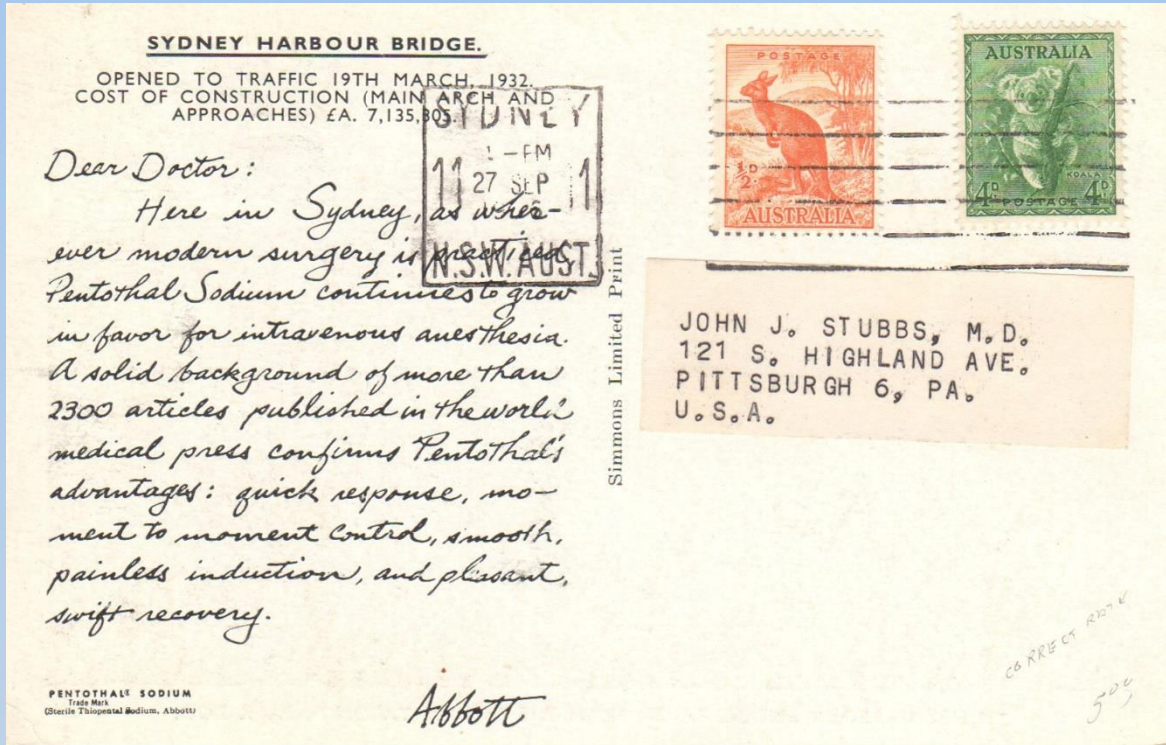 SYDNEY HARBOUR BRIDGE.
OPENED TO TRAFFIC 19TH MARCH, 1932.
COST OF CONSTRUCTION (MAIN ARCH AND
APPROACHES) £A. 7,135,805.
Dear Doctor:
Here in Sydney, as wher-
ever modern surgery is practiced,
Pentothal Sodium continues to grow
in favor for intravenous anesthesia.
A solid background of more than
2300 articles published in the world
medical press confirms Pentothal's
advantages: quick response, mo-
ment to moment control, smooth,
painless induction, and pleasant,
swift recovery.
Abbott
PENTOTHAL® SODIUM
Trade Mark
(Sterile Thiopental Sodium, Abbott)
SYDNEY
-PM
11 27 SEP 11
N.S.W. AUST.
Simmons Limited Print
POSTAGE
½D
AUSTRALIA
AUSTRALIA
KOALA
4D POSTAGE 4D
JOHN J. STUBBS, M.D.
121 S. HIGHLAND AVE.
PITTSBURGH 6, PA.
U.S.A.
CORRECT RATE
500